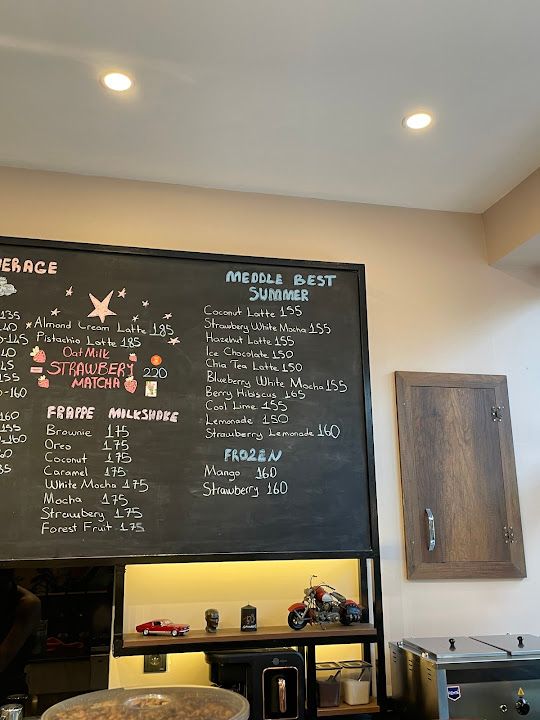 ERAGE
135
Almond Cream Latte 185
Pistachio Latte 185
Oat Milk
STRAWBERY 220
MATCHA
160
FRAPPE MILKSHAKE
Brownie 175
Oreo 175
Coconut 175
Caramel 175
White Mocha 175
Mocha 175
Strawbery 175
Forest Fruit 175
MEDDLE BEST
SUMMER
Coconut Latte 155
Strawbery White Mocha 155
Hazelnut Latte 155
Ice Chocolate 150
Chia Tea Latte 150
Blueberry White Mocha 155
Berry Hibiscus 165
Cool Lime 155
Lemonade 150
Strawberry Lemonade 160
FROZEN
Mango 160
Strawberry 160